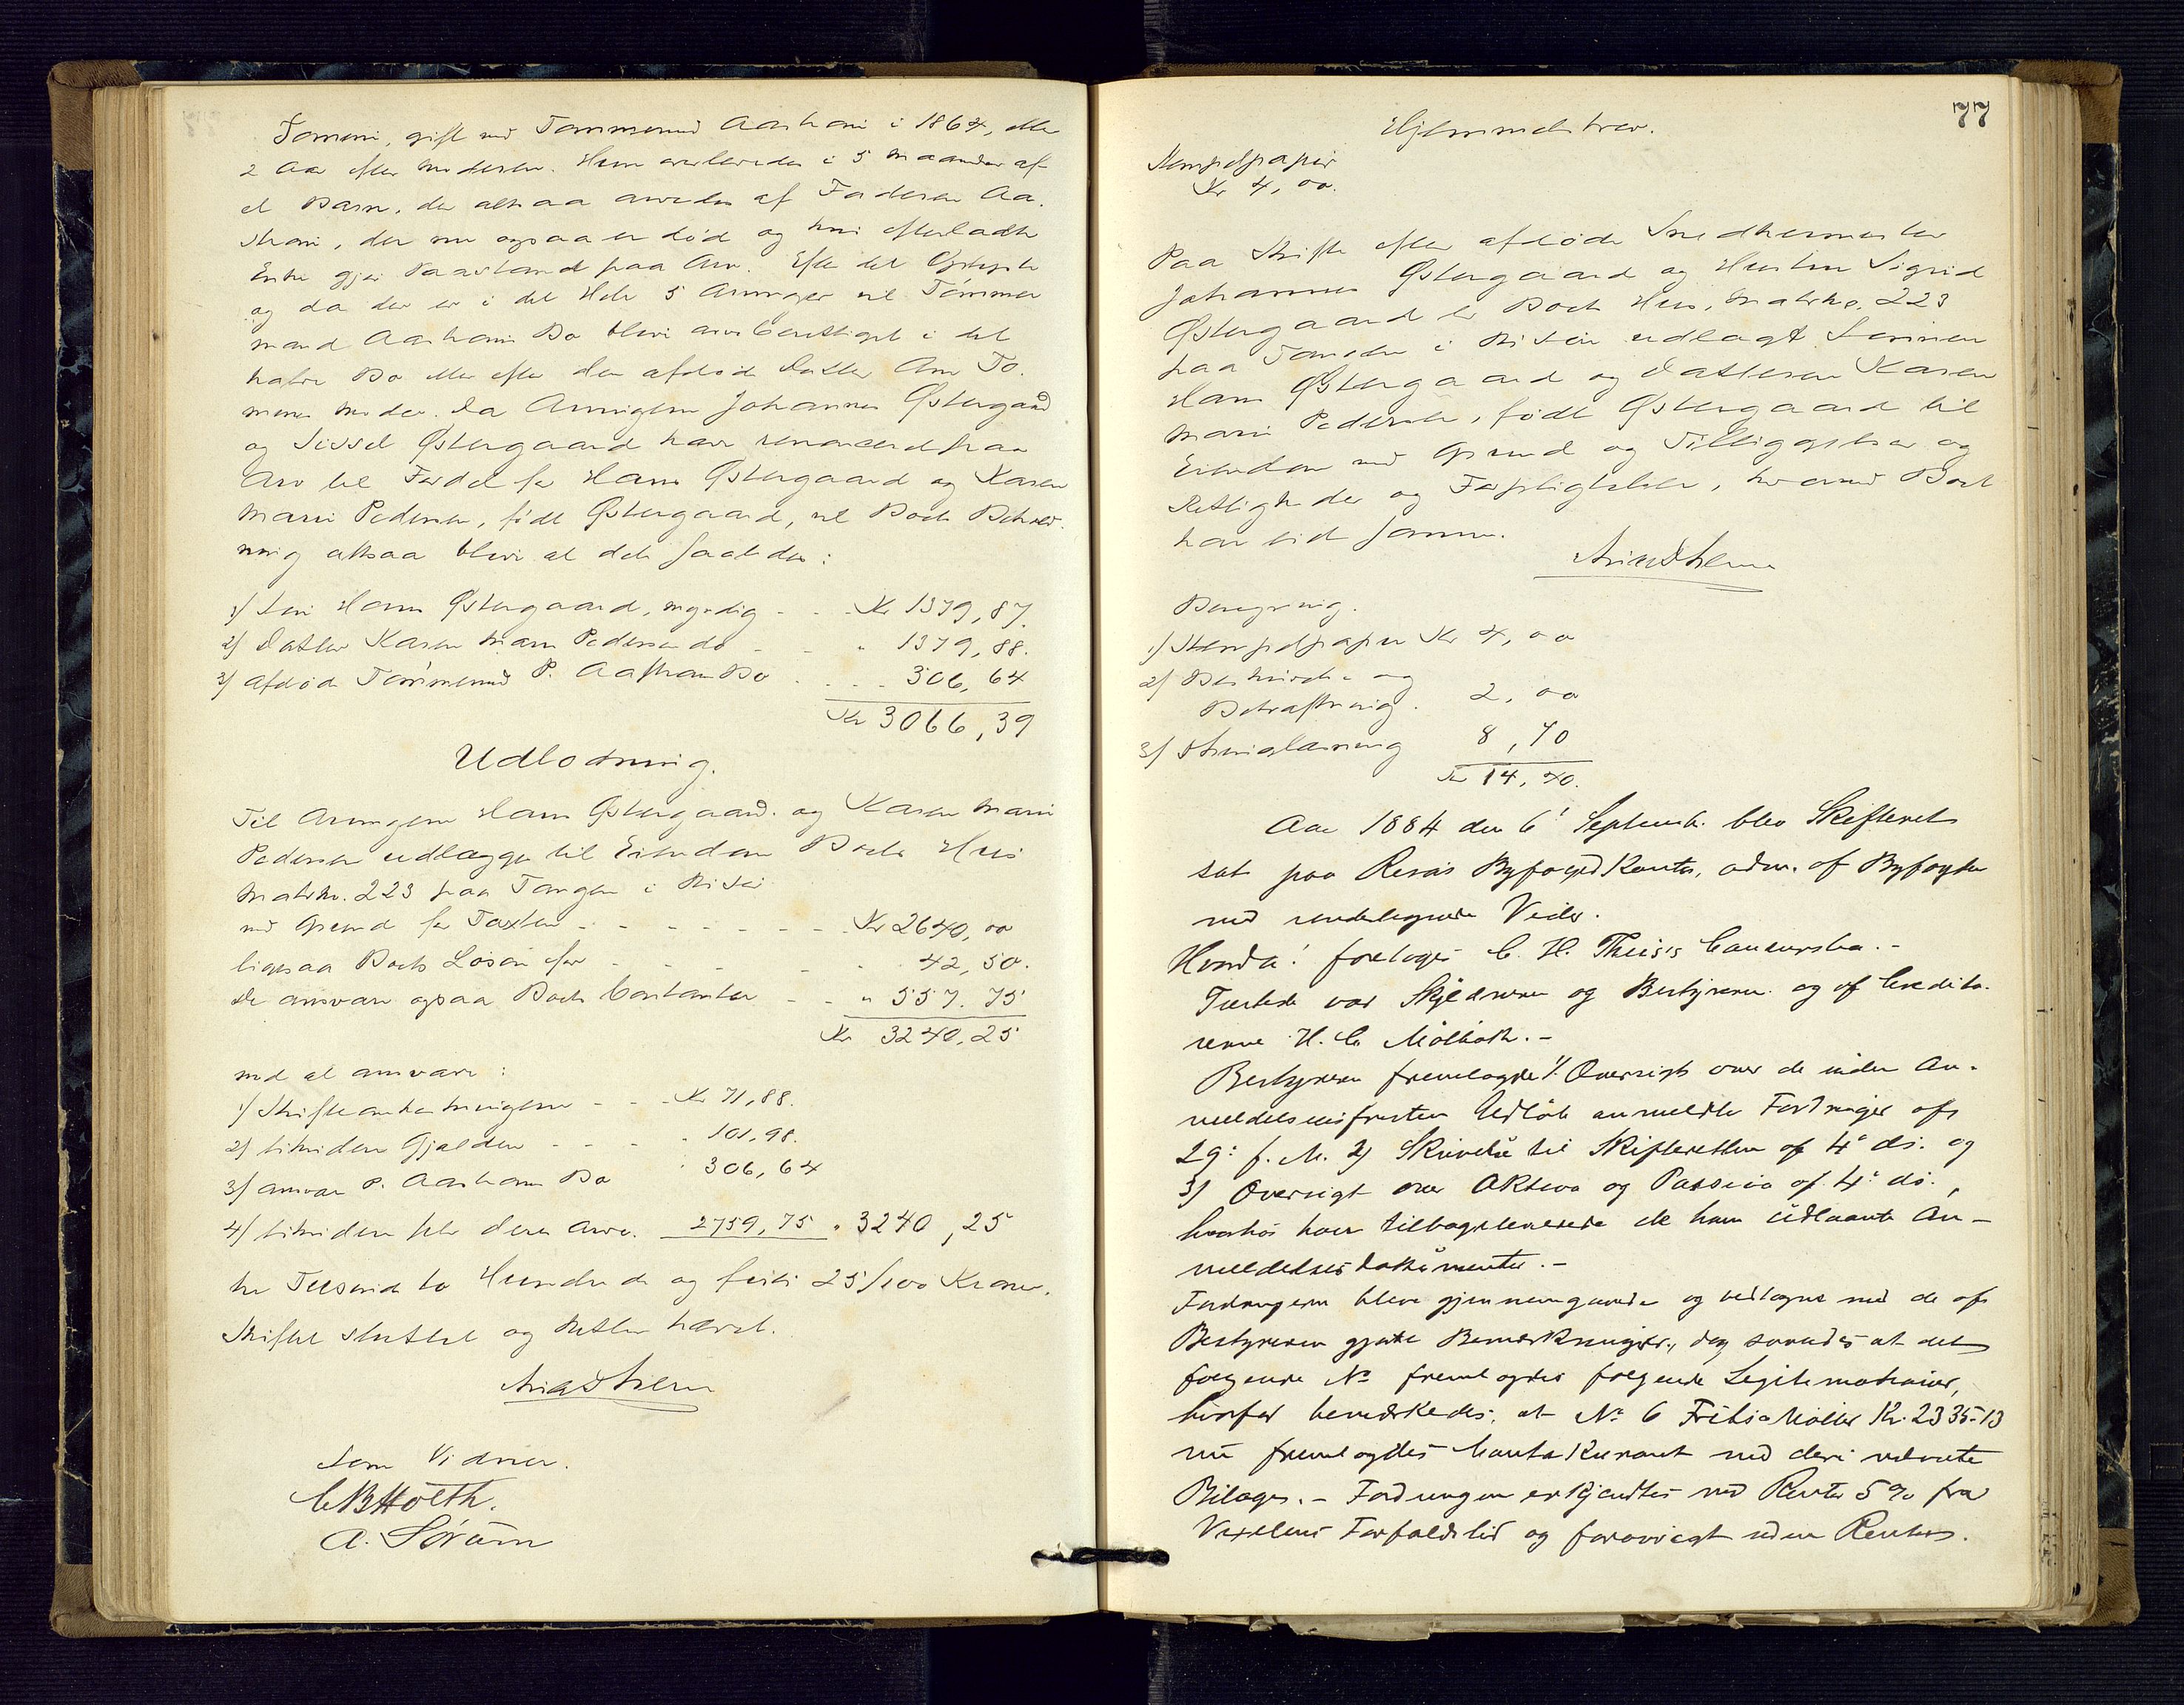 gift med Tømmermand Aashani i 1864, eller
2 Aar efter Moderen. Hun overlevedes i 5 Maander af
et Barn, der altsaa arvedes af Faderen Aa.
der nu ogsaa er død og hvis efterladte
Enke gjør Paastand paa Arv. Efter det Oplyste
og da der er i det Hele 5 Arvinger vil Tømmer
mand Aashani Bo blive arveberettiget i det
halve Bo eller efter den afdøde Datter
Moder. Da Arvingerne Johannes Østergaard
og Sissel Østergaard have renonceret paa
Arv til Fordel for Hans Østergaard og Karen
Marie Pedersen, født Østergaard, vil Boets Behold-
ning altsaa blive at dele saaledes:
1) Søn Hans Østergaard, myndig - - - Kr 1379,87.
2) Datter Karen Marie Pedersen do - - " 1379,88.
3) afdøde Tømmermd P. Bo - - - 306,64
Kr 3066,39
Udlodning.
Til Arvingerne Hans Østergaard og Karen Marie
Pedersen udlægges til Eiendom Boets Hus
Matrno. 223 paa Tangen i Risør
med Grund for Taxten - - - - - - - Kr 2640,00
ligesaa Boets Løsøre for - - - - - 42,50.
de ansvare ogsaa Boets Contanter - - " 557.75
Kr 3240,25
mod at ansvare:
1) Skifteomkostningerne - - - Kr 71,88.
2) likvidere Gjælden - - - - 101,98.
3) ansvare P. Bo " 306,64
4) likvidere selv deres Arv. 2759,75 " 3240,25
tre Tusinde to Hundrede og firti 25/100 Kroner.
Skiftet sluttet og Retten hævet.
Som Vidner.
C B Holth.
A. Sørum
77
Hjemmelsbrev.
Stempelpapir
Kr 4,00.
Paa Skifte efter afdøde Snedkermester
Johannes Østergaard og Hustru Sigrid
Østergaard er Boets Hus, Matrno. 223
paa Tangen i Risør udlagt Sønnen
Hans Østergaard og Datteren Karen
Marie Pedersen, født Østergaard til
Eiendom med Grund og Tilliggelser og
Rettigheder og Forpligtelser, hvormed Boet
har eid samme.
Beregning.
1) Stempelpapir Kr 4,00
2) Beskrivelse og
Bekræftning. 2,00
3) Thinglæsning 8,40
Kr 14,40.
Aar 1884 den 6' Septemb. blev Skifteret
sat paa Risørs Byfogedkontor, adm. af Byfogden
med undertegnede Vidner.
Hvorda: foretoges C. H. Theisis Concursbo.-
Tilstede var Skyldneren og Bestyreren og af Credito-
rerne H. C.
Bestyreren fremlagde 1) Oversigt over de inden An-
meldelsesfristens Udløb anmeldte Fordringer af
29: f. M. 2) Skrivelse til Skifteretten af 4' ds. og
3) Oversigt over Aktiva og Passiva af 4' ds.,
hvorhos han tilbageleverede de ham udlaante An-
meldelsesdokumenter.-
Fordringerne bleve gjennemgaaede og vedtagne med de af
Bestyreren gjorte Bemærkninger, dog saaledes at det
følgende No fremlagdes følgende Legitimationer,
hvorfor bemærkedes, at No 6 Frits Møller Kr. 2335-13
nu fremlagdes Conto Kurant med deri nævnte
Bilager. - Fordringen erkjendtes med Renter 5 % fra
Vexelens Forfaldstid og forøvrigt uden Renter.